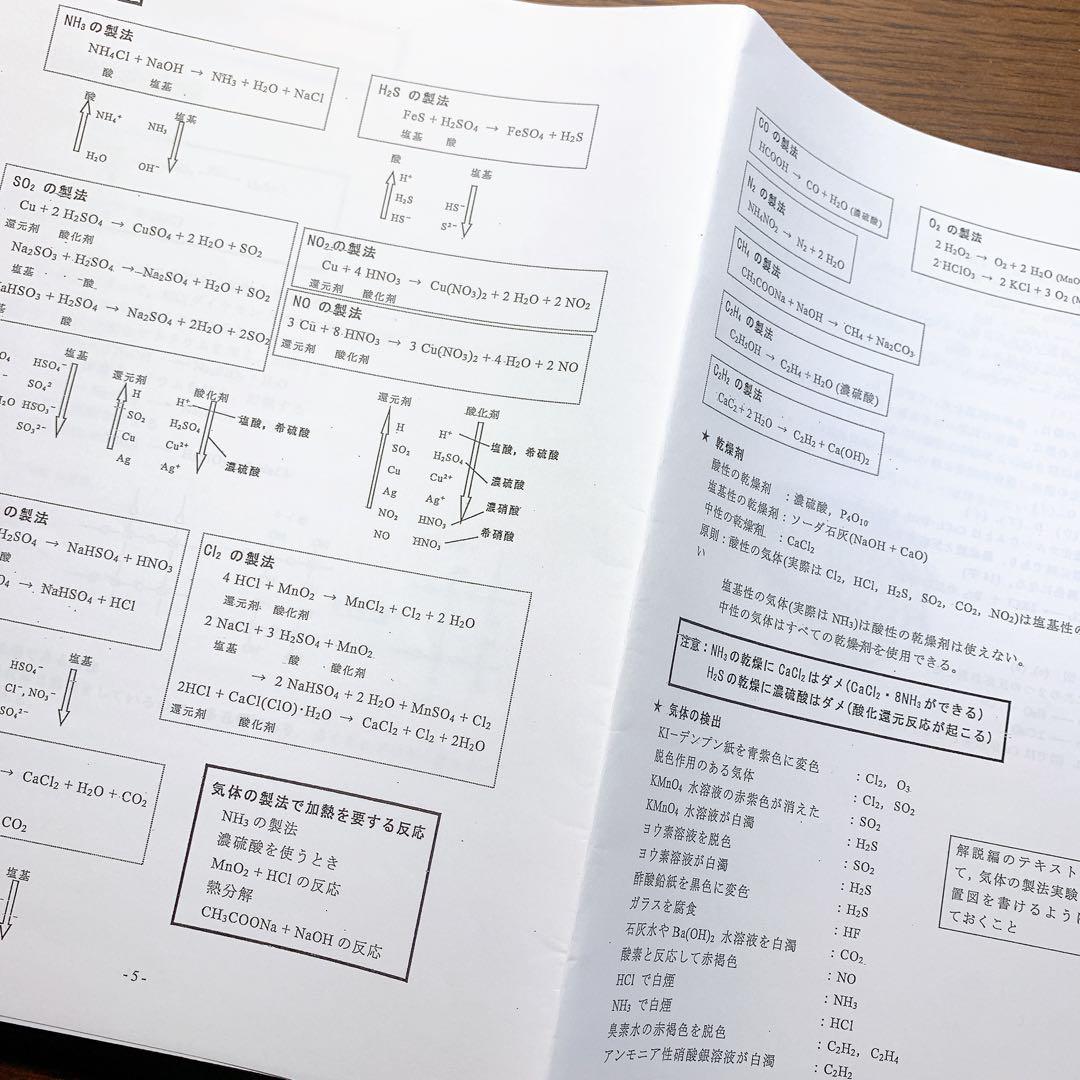 NH₃の製法
NH₄Cl + NaOH → NH₃ + H₂O + NaCl
酸 塩基
酸 塩基
NH₄⁺ NH₃
H₂O OH⁻
H₂S の製法
FeS + H₂SO₄ → FeSO₄ + H₂S
塩基 酸
酸 塩基
H⁺
H₂S HS⁻
HS⁻ S²⁻
SO₂ の製法
Cu + 2 H₂SO₄ → CuSO₄ + 2 H₂O + SO₂
還元剤 酸化剤
Na₂SO₃ + H₂SO₄ → Na₂SO₄ + H₂O + SO₂
塩基 酸
aHSO₃ + H₂SO₄ → Na₂SO₄ + 2H₂O + 2SO₂
酸
NO₂の製法
Cu + 4 HNO₃ → Cu(NO₃)₂ + 2 H₂O + 2 NO₂
還元剤 酸化剤
NO の製法
3 Cu + 8 HNO₃ → 3 Cu(NO₃)₂ + 4 H₂O + 2 NO
還元剤 酸化剤
塩基
HSO₄⁻
SO₄²
HSO₃⁻
SO₃²⁻
還元剤 酸化剤
H H⁺ 塩酸，希硫酸
SO₂ H₂SO₄
Cu Cu²⁺ 濃硫酸
Ag Ag⁺
還元剤 酸化剤
H H⁺ 塩酸，希硫酸
SO₂ H₂SO₄ 濃硫酸
Cu Cu²⁺
Ag Ag⁺ 濃硝酸
NO₂ HNO₃ 希硝酸
NO HNO₃
の製法
H₂SO₄ → NaHSO₄ + HNO₃
酸
→ NaHSO₄ + HCl
塩基
HSO₄⁻
Cl⁻, NO₃⁻
SO₄²⁻
→ CaCl₂ + H₂O + CO₂
CO₂
塩基
Cl₂ の製法
4 HCl + MnO₂ → MnCl₂ + Cl₂ + 2 H₂O
還元剤 酸化剤
2 NaCl + 3 H₂SO₄ + MnO₂
塩基 酸 酸化剤
→ 2 NaHSO₄ + 2 H₂O + MnSO₄ + Cl₂
2HCl + CaCl(ClO)・H₂O → CaCl₂ + Cl₂ + 2H₂O
還元剤 酸化剤
気体の製法で加熱を要する反応
NH₃ の製法
濃硫酸を使うとき
MnO₂ + HCl の反応
熱分解
CH₃COONa + NaOH の反応
-5-
CO の製法
HCOOH → CO + H₂O (濃硫酸)
N₂ の製法
NH₄NO₂ → N₂ + 2 H₂O
CH₄ の製法
CH₃COONa + NaOH → CH₄ + Na₂CO₃
C₂H₄ の製法
C₂H₅OH → C₂H₄ + H₂O (濃硫酸)
C₂H₂ の製法
CaC₂ + 2 H₂O → C₂H₂ + Ca(OH)₂
O₂ の製法
2 H₂O₂ → O₂ + 2 H₂O (MnO
2 HClO₃ → 2 KCl + 3 O₂ (M
★ 乾燥剤
酸性の乾燥剤 ：濃硫酸，P₄O₁₀
塩基性の乾燥剤：ソーダ石灰(NaOH + CaO)
中性の乾燥剤 ：CaCl₂
原則：酸性の気体(実際は Cl₂，HCl，H₂S，SO₂，CO₂，NO₂)は塩基性の
い
塩基性の気体(実際は NH₃)は酸性の乾燥剤は使えない。
中性の気体はすべての乾燥剤を使用できる。
注意：NH₃の乾燥に CaCl₂はダメ(CaCl₂・8NH₃ができる)
H₂Sの乾燥に濃硫酸はダメ(酸化還元反応が起こる)
★ 気体の検出
KI−デンプン紙を青紫色に変色 ：Cl₂，O₃
脱色作用のある気体 ：Cl₂，SO₂
KMnO₄ 水溶液の赤紫色が消えた ：SO₂
KMnO₄ 水溶液が白濁 ：H₂S
ヨウ素溶液を脱色 ：SO₂
ヨウ素溶液が白濁 ：H₂S
酢酸鉛紙を黒色に変色 ：H₂S
ガラスを腐食 ：HF
石灰水や Ba(OH)₂ 水溶液を白濁 ：CO₂
酸素と反応して赤褐色 ：NO
HCl で白煙 ：NH₃
NH₃ で白煙 ：HCl
臭素水の赤褐色を脱色 ：C₂H₂，C₂H₄
アンモニア性硝酸銀溶液が白濁 ：C₂H₂
解説編のテキスト
て，気体の製法実験
置図を書けるように
ておくこと